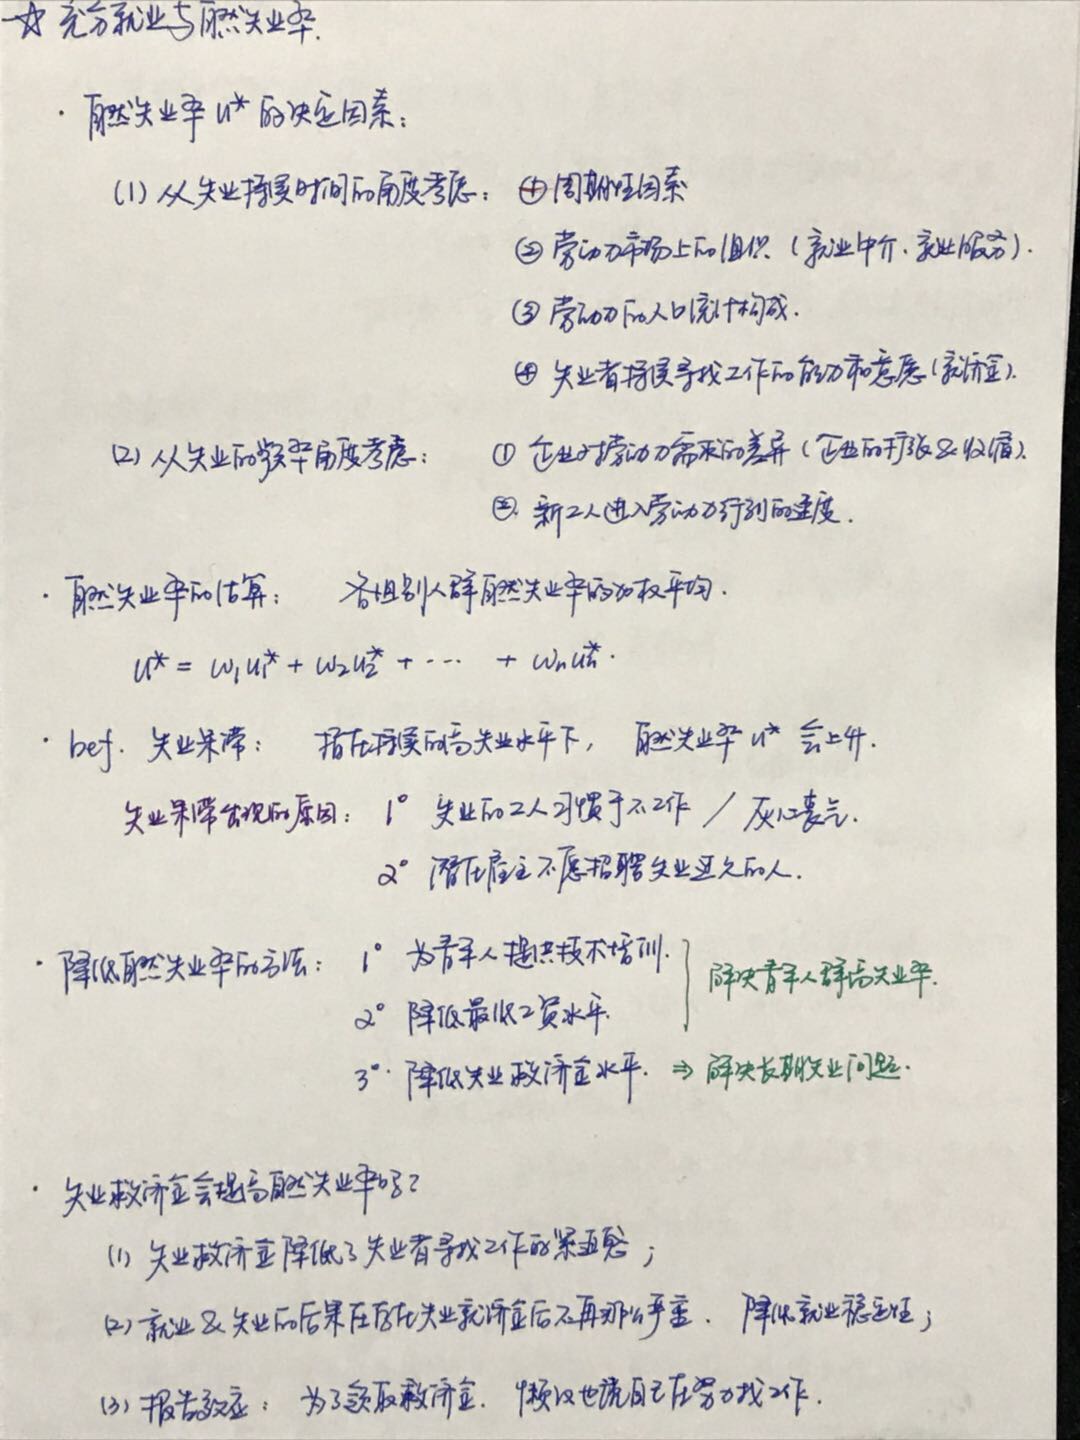 ☆ 充分就业与自然失业率.
· 自然失业率 u* 的决定因素:
(1) 从失业持续时间的角度考虑: ① 周期性因素
② 劳动力市场上的组织 (就业中介、就业服务).
③ 劳动力的人口统计构成.
④ 失业者持续寻找工作的能力和意愿 (救济金).
(2) 从失业的频率角度考虑: ① 企业对劳动力需求的差异 (企业的扩张&收缩).
②. 新工人进入劳动力行列的速度.
· 自然失业率的估算: 各组别人群自然失业率的加权平均.
u* = w₁u₁* + w₂u₂* + ··· + wₙuₙ*.
· def. 失业呆滞: 指在持续的高失业水平下, 自然失业率 u* 会上升.
失业呆滞出现的原因: 1° 失业的工人习惯于不工作 / 灰心丧气.
2° 潜在雇主不愿招聘失业过久的人.
· 降低自然失业率的方法: 1° 为青年人提供技术培训.
2° 降低最低工资水平. 解决青年人群高失业率.
3°. 降低失业救济金水平. ⇒ 解决长期失业问题.
· 失业救济金会提高自然失业率吗?
(1) 失业救济金降低了失业者寻找工作的紧迫感;
(2) 就业&失业的后果在存在失业就济金后不再那么严重、降低就业稳定性;
(3) 报告效应: 为了领取救济金、懒汉也说自己在努力找工作.